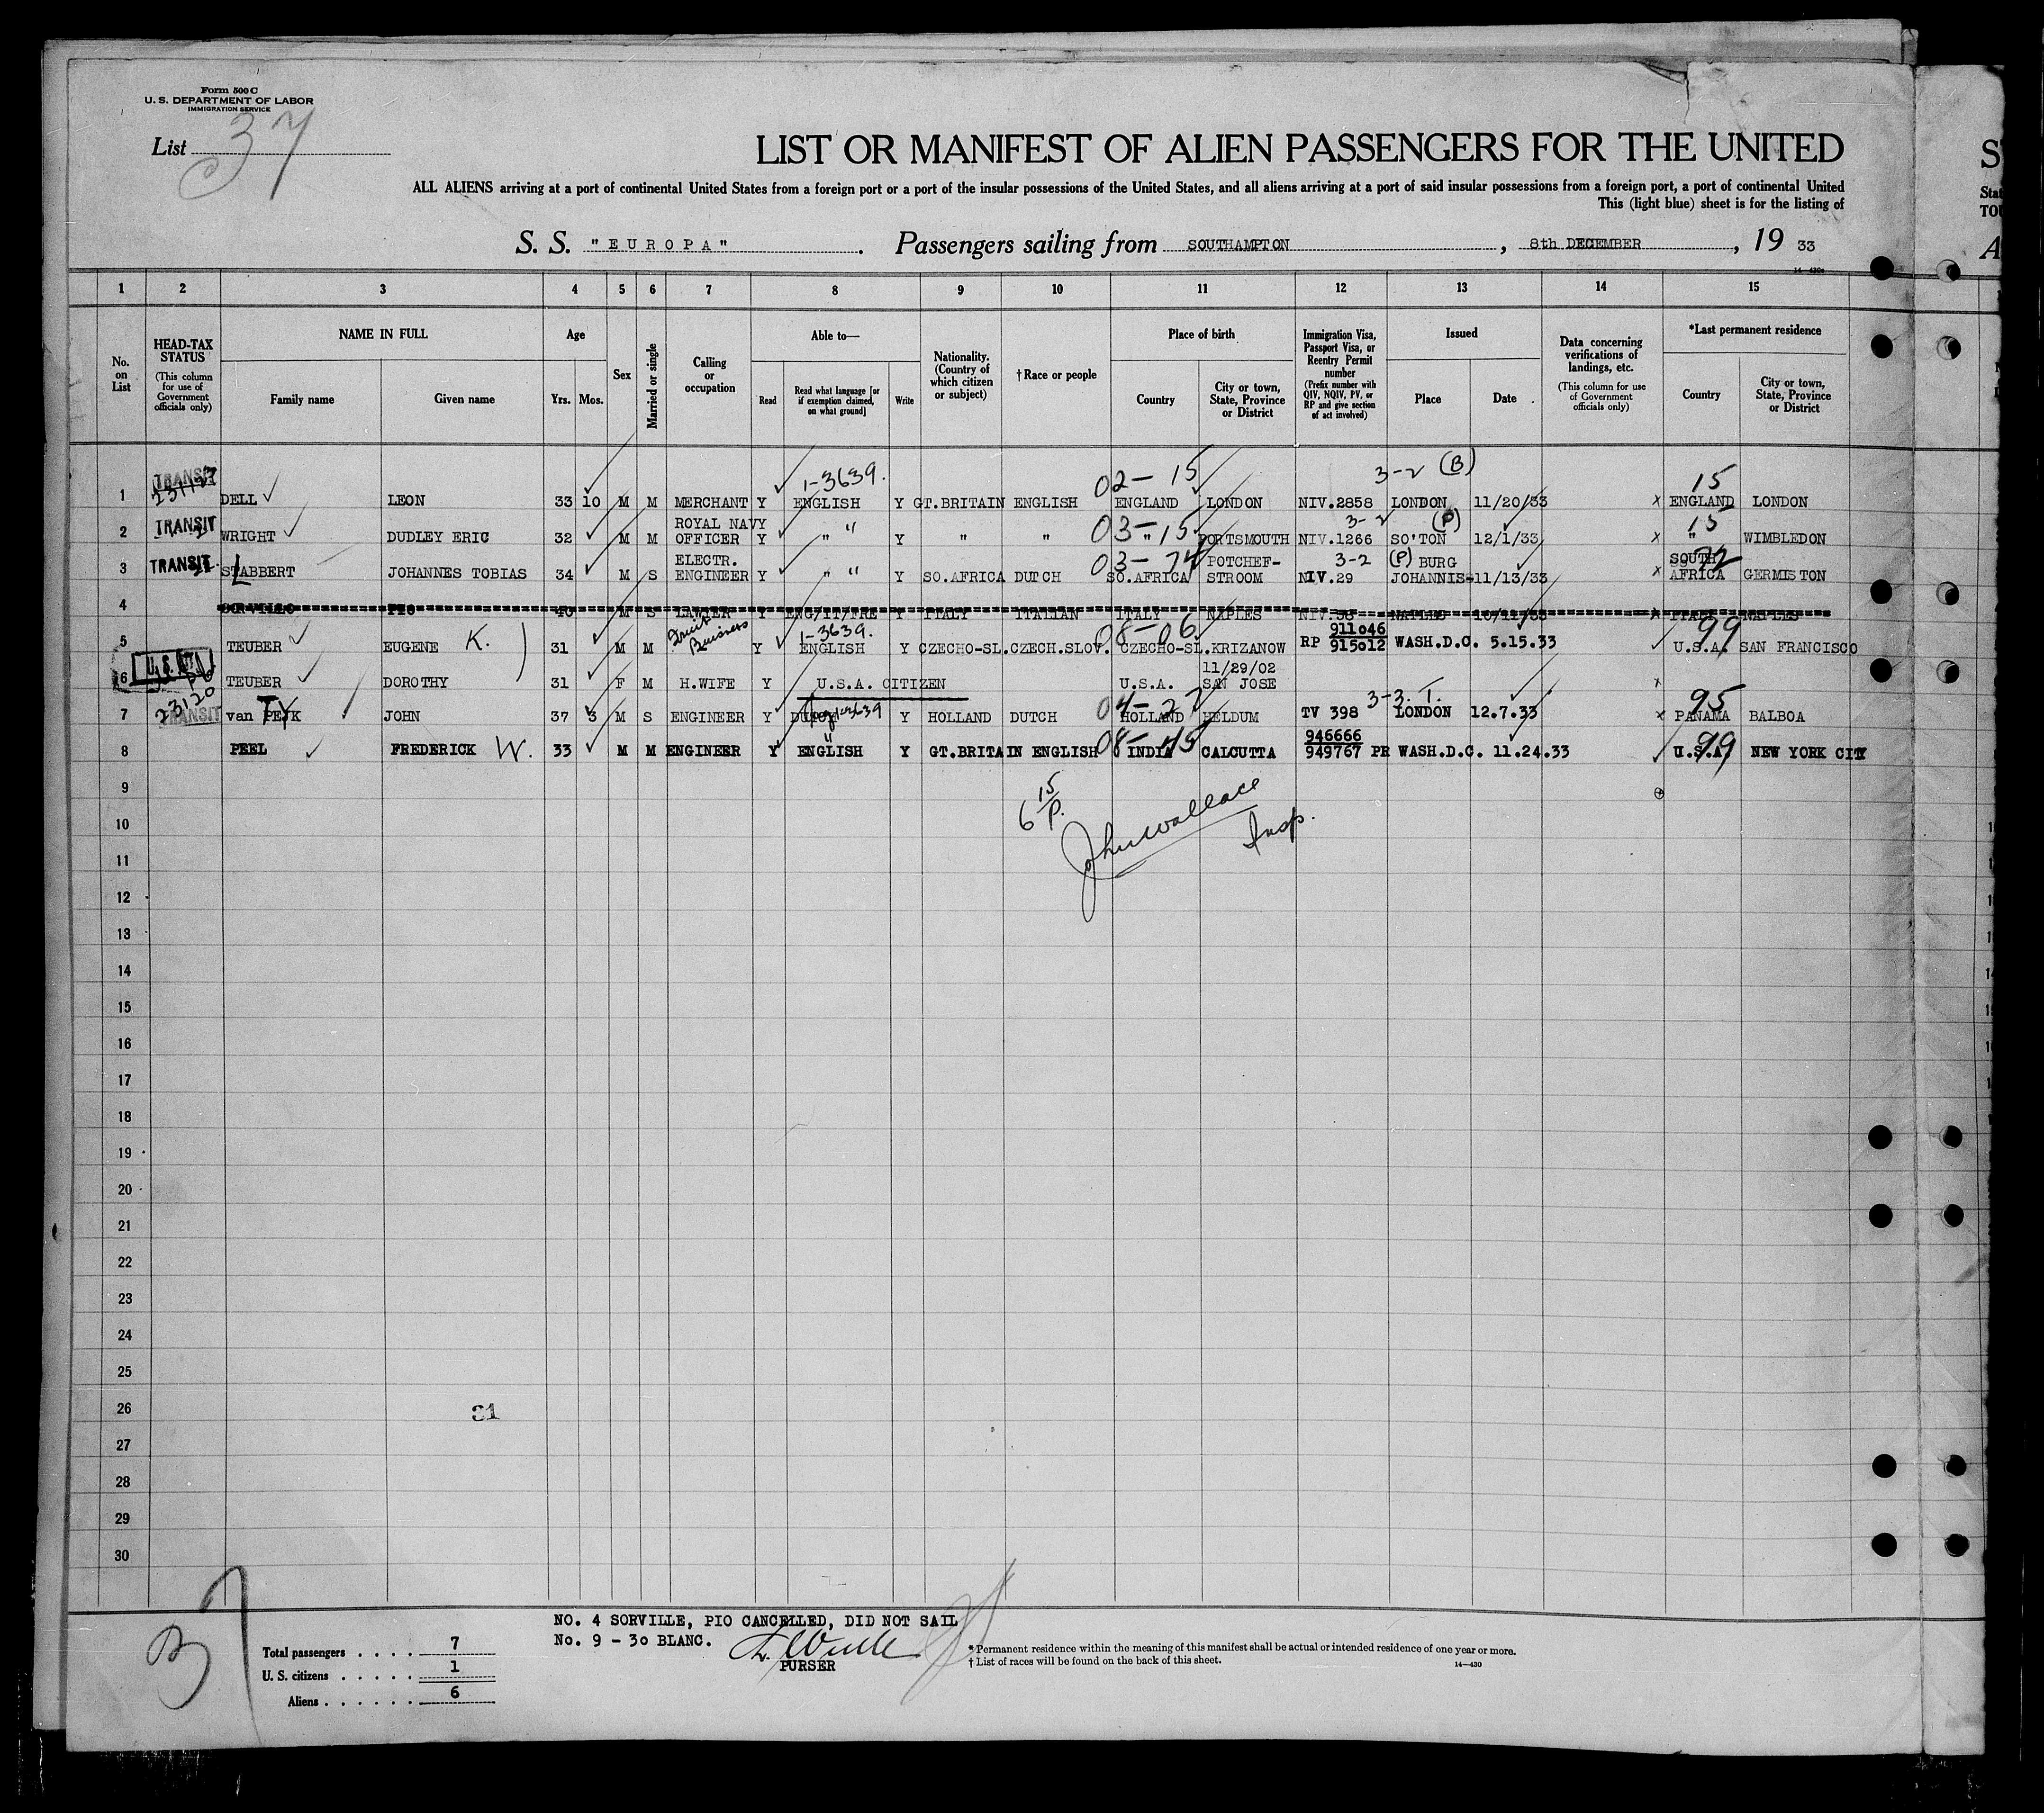 Form 500 C
U. S. DEPARTMENT OF LABOR
IMMIGRATION SERVICE
List 37
LIST OR MANIFEST OF ALIEN PASSENGERS FOR THE UNITED
ALL ALIENS arriving at a port of continental United States from a foreign port or a port of the insular possessions of the United States, and all aliens arriving at a port of said insular possessions from a foreign port, a port of continental United
This (light blue) sheet is for the listing of
S. S. "EUROPA". Passengers sailing from SOUTHAMPTON, 8th DECEMBER, 19 33
14—430a
1 2 3 4 5 6 7 8 9 10 11 12 13 14 15
No. on List
HEAD-TAX STATUS (This column for use of Government officials only)
NAME IN FULL
Family name Given name
Age Yrs. Mos.
Sex
Married or single
Calling or occupation
Able to—
Read
Read what language [or if exemption claimed, on what ground]
Write
Nationality. (Country of which citizen or subject)
†Race or people
Place of birth
Country
City or town, State, Province or District
Immigration Visa, Passport Visa, or Reentry Permit number (Prefix number with QIV, NQIV, PV, or RP and give section of act involved)
Issued
Place Date
Data concerning verifications of landings, etc. (This column for use of Government officials only)
*Last permanent residence
Country
City or town, State, Province or District
1-3639. 02-15 3-2 (B) 15
1 TRANSIT DELL LEON 33 10 M M MERCHANT Y ENGLISH Y GT.BRITAIN ENGLISH ENGLAND LONDON NIV.2858 LONDON 11/20/33 x ENGLAND LONDON
03-15 3-2 (P) 15
2 TRANSIT WRIGHT DUDLEY ERIC 32 M M ROYAL NAVY OFFICER Y " " Y " " " PORTSMOUTH NIV.1266 SO'TON 12/1/33 x " WIMBLEDON
03-74 3-2 (P) 72
3 TRANSIT STABBERT L JOHANNES TOBIAS 34 M S ELECTR. ENGINEER Y " " Y SO.AFRICA DUTCH SO.AFRICA POTCHEF-STROOM NIV.29 JOHANNIS-BURG 11/13/33 x SOUTH AFRICA GERMISTON
4 SORVILLO PIO 40 M S LAWYER Y ENG/IT/FRE Y ITALY ITALIAN ITALY NAPLES NIV.38 NAPLES 10/11/33 x ITALY NAPLES
1-3639. 08-06 99
5 TEUBER EUGENE K. 31 M M Fruit Buisness Y ENGLISH Y CZECHO-SL. CZECH.SLOV. CZECHO-SL. KRIZANOW RP 911046 915012 WASH.D.C. 5.15.33 U.S.A. SAN FRANCISCO
6 TEUBER DOROTHY 31 F M H.WIFE Y U.S.A. CITIZEN U.S.A. 11/29/02 SAN JOSE x
23120 04-27 3-3. T. 95
7 TRANSIT van PEYK JOHN 37 3 M S ENGINEER Y DUTCH Y HOLLAND DUTCH HOLLAND HELDUM TV 398 LONDON 12.7.33 x PANAMA BALBOA
08-45 99
8 PEEL FREDERICK W. 33 M M ENGINEER Y ENGLISH Y GT.BRITAIN ENGLISH INDIA CALCUTTA 946666 949767 PR WASH.D.C. 11.24.33 U.S.A. NEW YORK CITY
9
10 6 15/P.
11 John Wallace Insp.
12
13
14
15
16
17
18
19
20
21
22
23
24
25
26 31
27
28
29
30
NO. 4 SORVILLE, PIO CANCELLED, DID NOT SAIL
No. 9 - 30 BLANC.
PURSER
Total passengers . . . . 7
U. S. citizens . . . . . 1
Aliens . . . . . . 6
* Permanent residence within the meaning of this manifest shall be actual or intended residence of one year or more.
† List of races will be found on the back of this sheet.
14—430